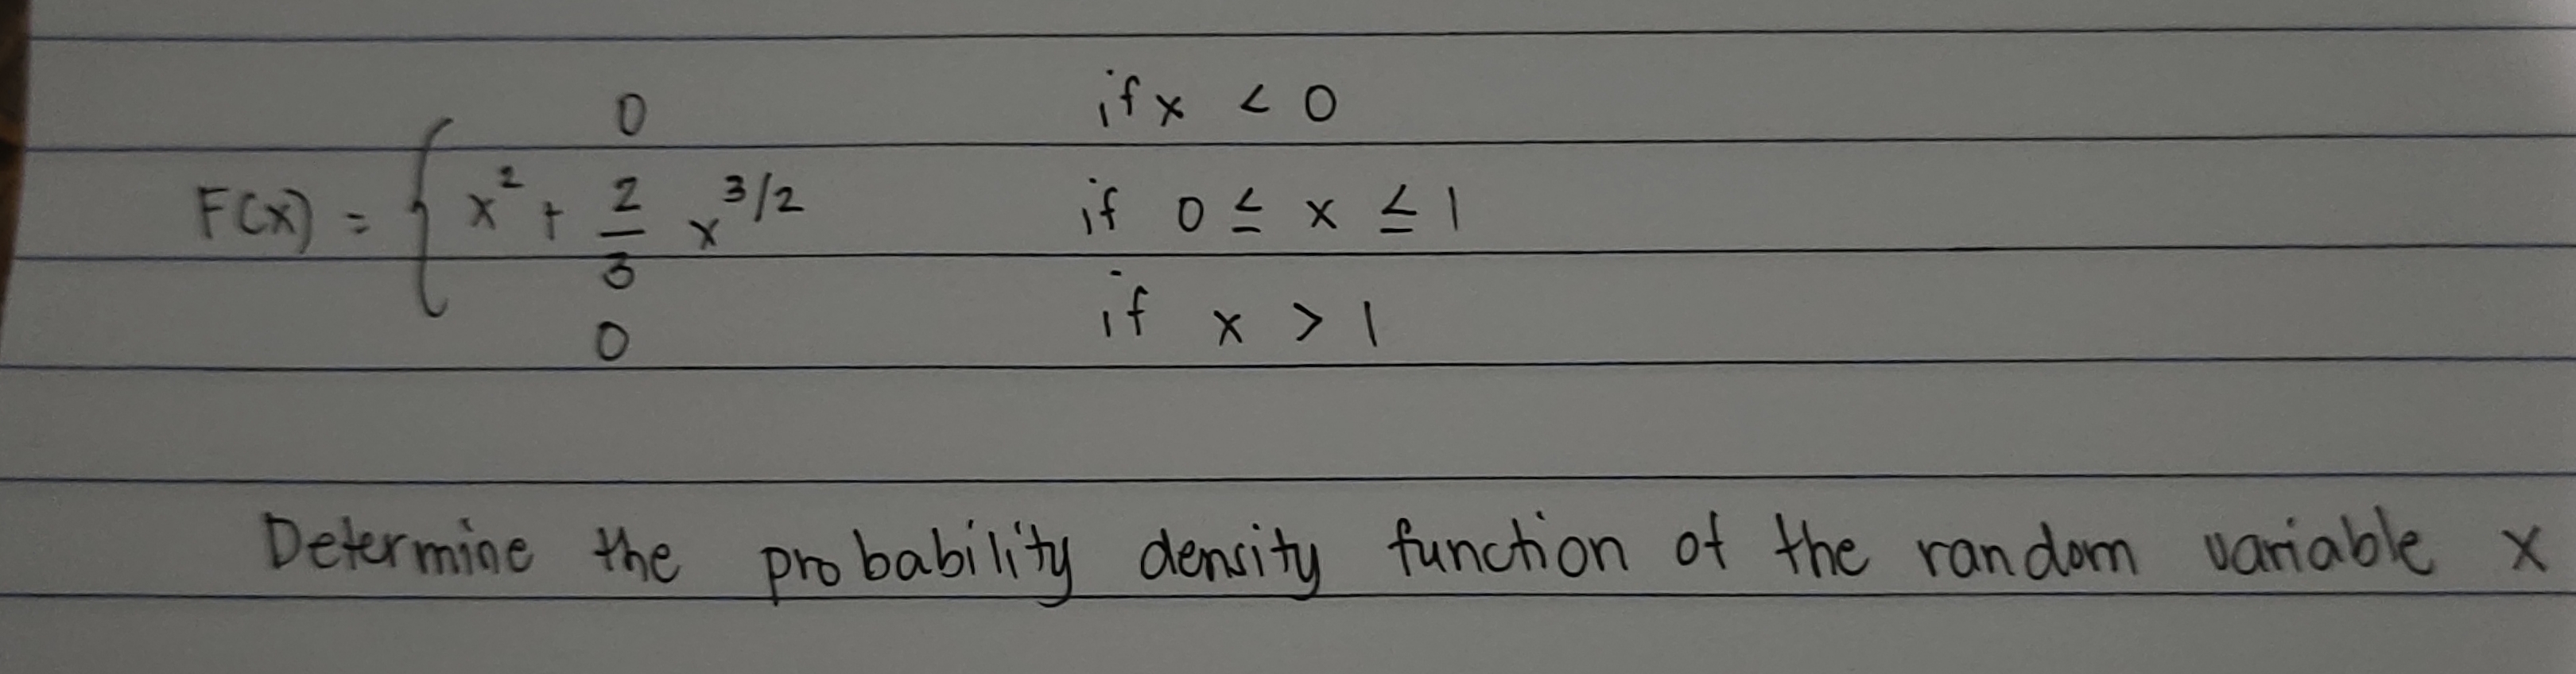 0 if x < 0
F(x) = { x² + 2/3 x^3/2 if 0 ≤ x ≤ 1
0 if x > 1
Determine the probability density function of the random variable x